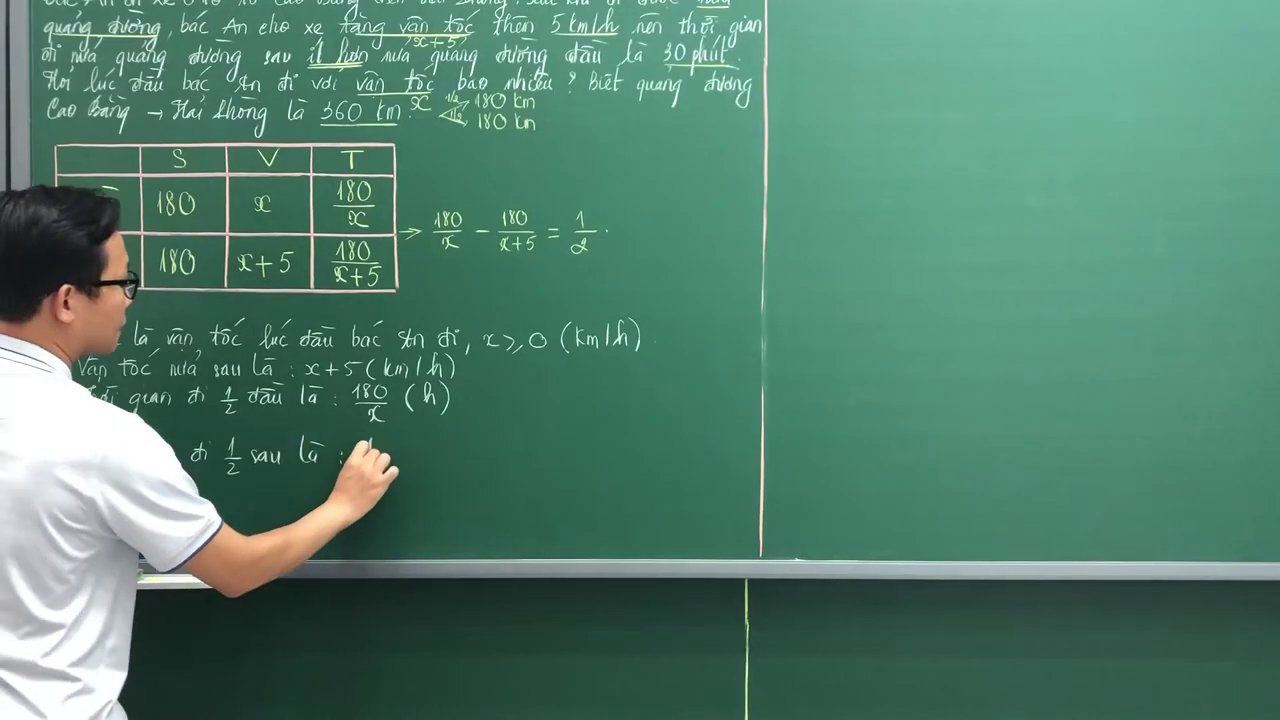 quãng đường, bác An cho xe tăng vận tốc thêm 5 km/h nên thời gian
x+5
đi nửa quãng đường sau ít hơn nửa quãng đường đầu là 30 phút.
Hỏi lúc đầu bác An đi với vận tốc bao nhiêu? Biết quãng đường
Cao Bằng → Hải Phòng là 360 km.
x
1/2 180 km
1/2 180 km
S V T
180 x 180/x
180 x+5 180/(x+5)
→ 180/x - 180/(x+5) = 1/2.
là vận tốc lúc đầu bác An đi, x ⩾ 0 (km/h)
Vận tốc nửa sau là: x+5 (km/h)
gian đi 1/2 đầu là: 180/x (h)
đi 1/2 sau là: